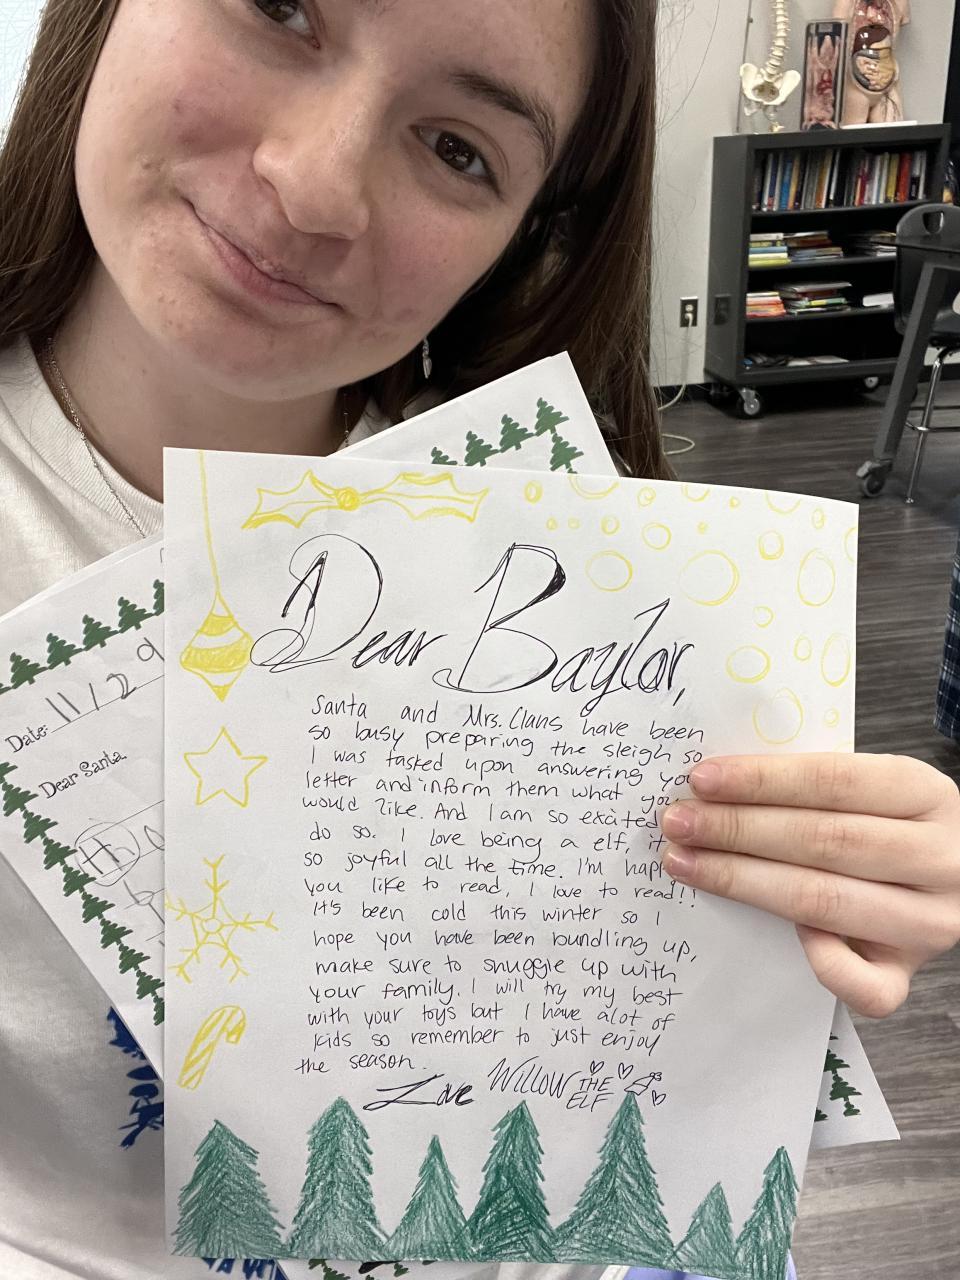 Dear Baylor,
Santa and Mrs. Claus have been
so busy preparing the sleigh so
I was tasked upon answering you
letter and inform them what you
would like. And I am so excited
do so. I love being a elf, it
so joyful all the time. I'm happ
you like to read, I love to read!!
It's been cold this winter so I
hope you have been bundling up,
make sure to snuggle up with
your family. I will try my best
with your toys but I have alot of
kids so remember to just enjoy
the season.
Love Willow THE
ELF
Date: 11/2
Dear Santa,